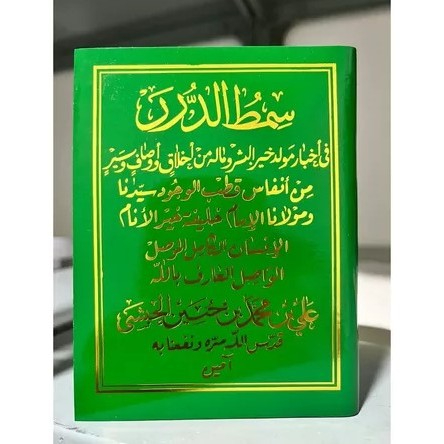 سِمْطُ الدُّرَرِ
فى أخبار مَولد خير البشر وماله من أخلاق وأوصاف وسير
من أنفاس قطب الوجود سيدنا
ومولانا الإمام خليفة خير الأنام
الإنسان الكامل المرصل
الواصل العارف بالله
علي بن محمد بن حسين الحبشى
قدس الله سره ونفعنا به
آمين